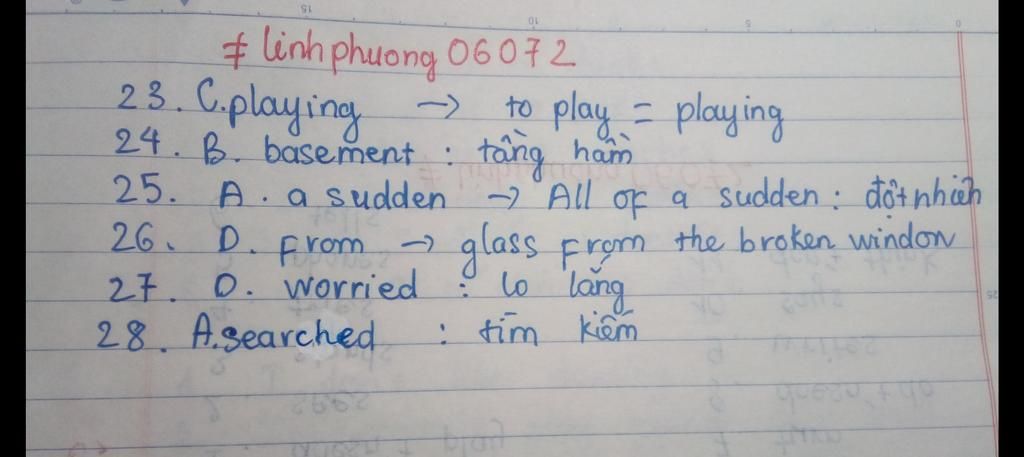 ≠ linhphuong 06072
23. C. playing → to play = playing
24. B. basement : tầng hầm
25. A. a sudden → All of a sudden : đột nhiên
26. D. From → glass From the broken window
27. D. worried : lo lắng
28. A. searched : tìm kiếm